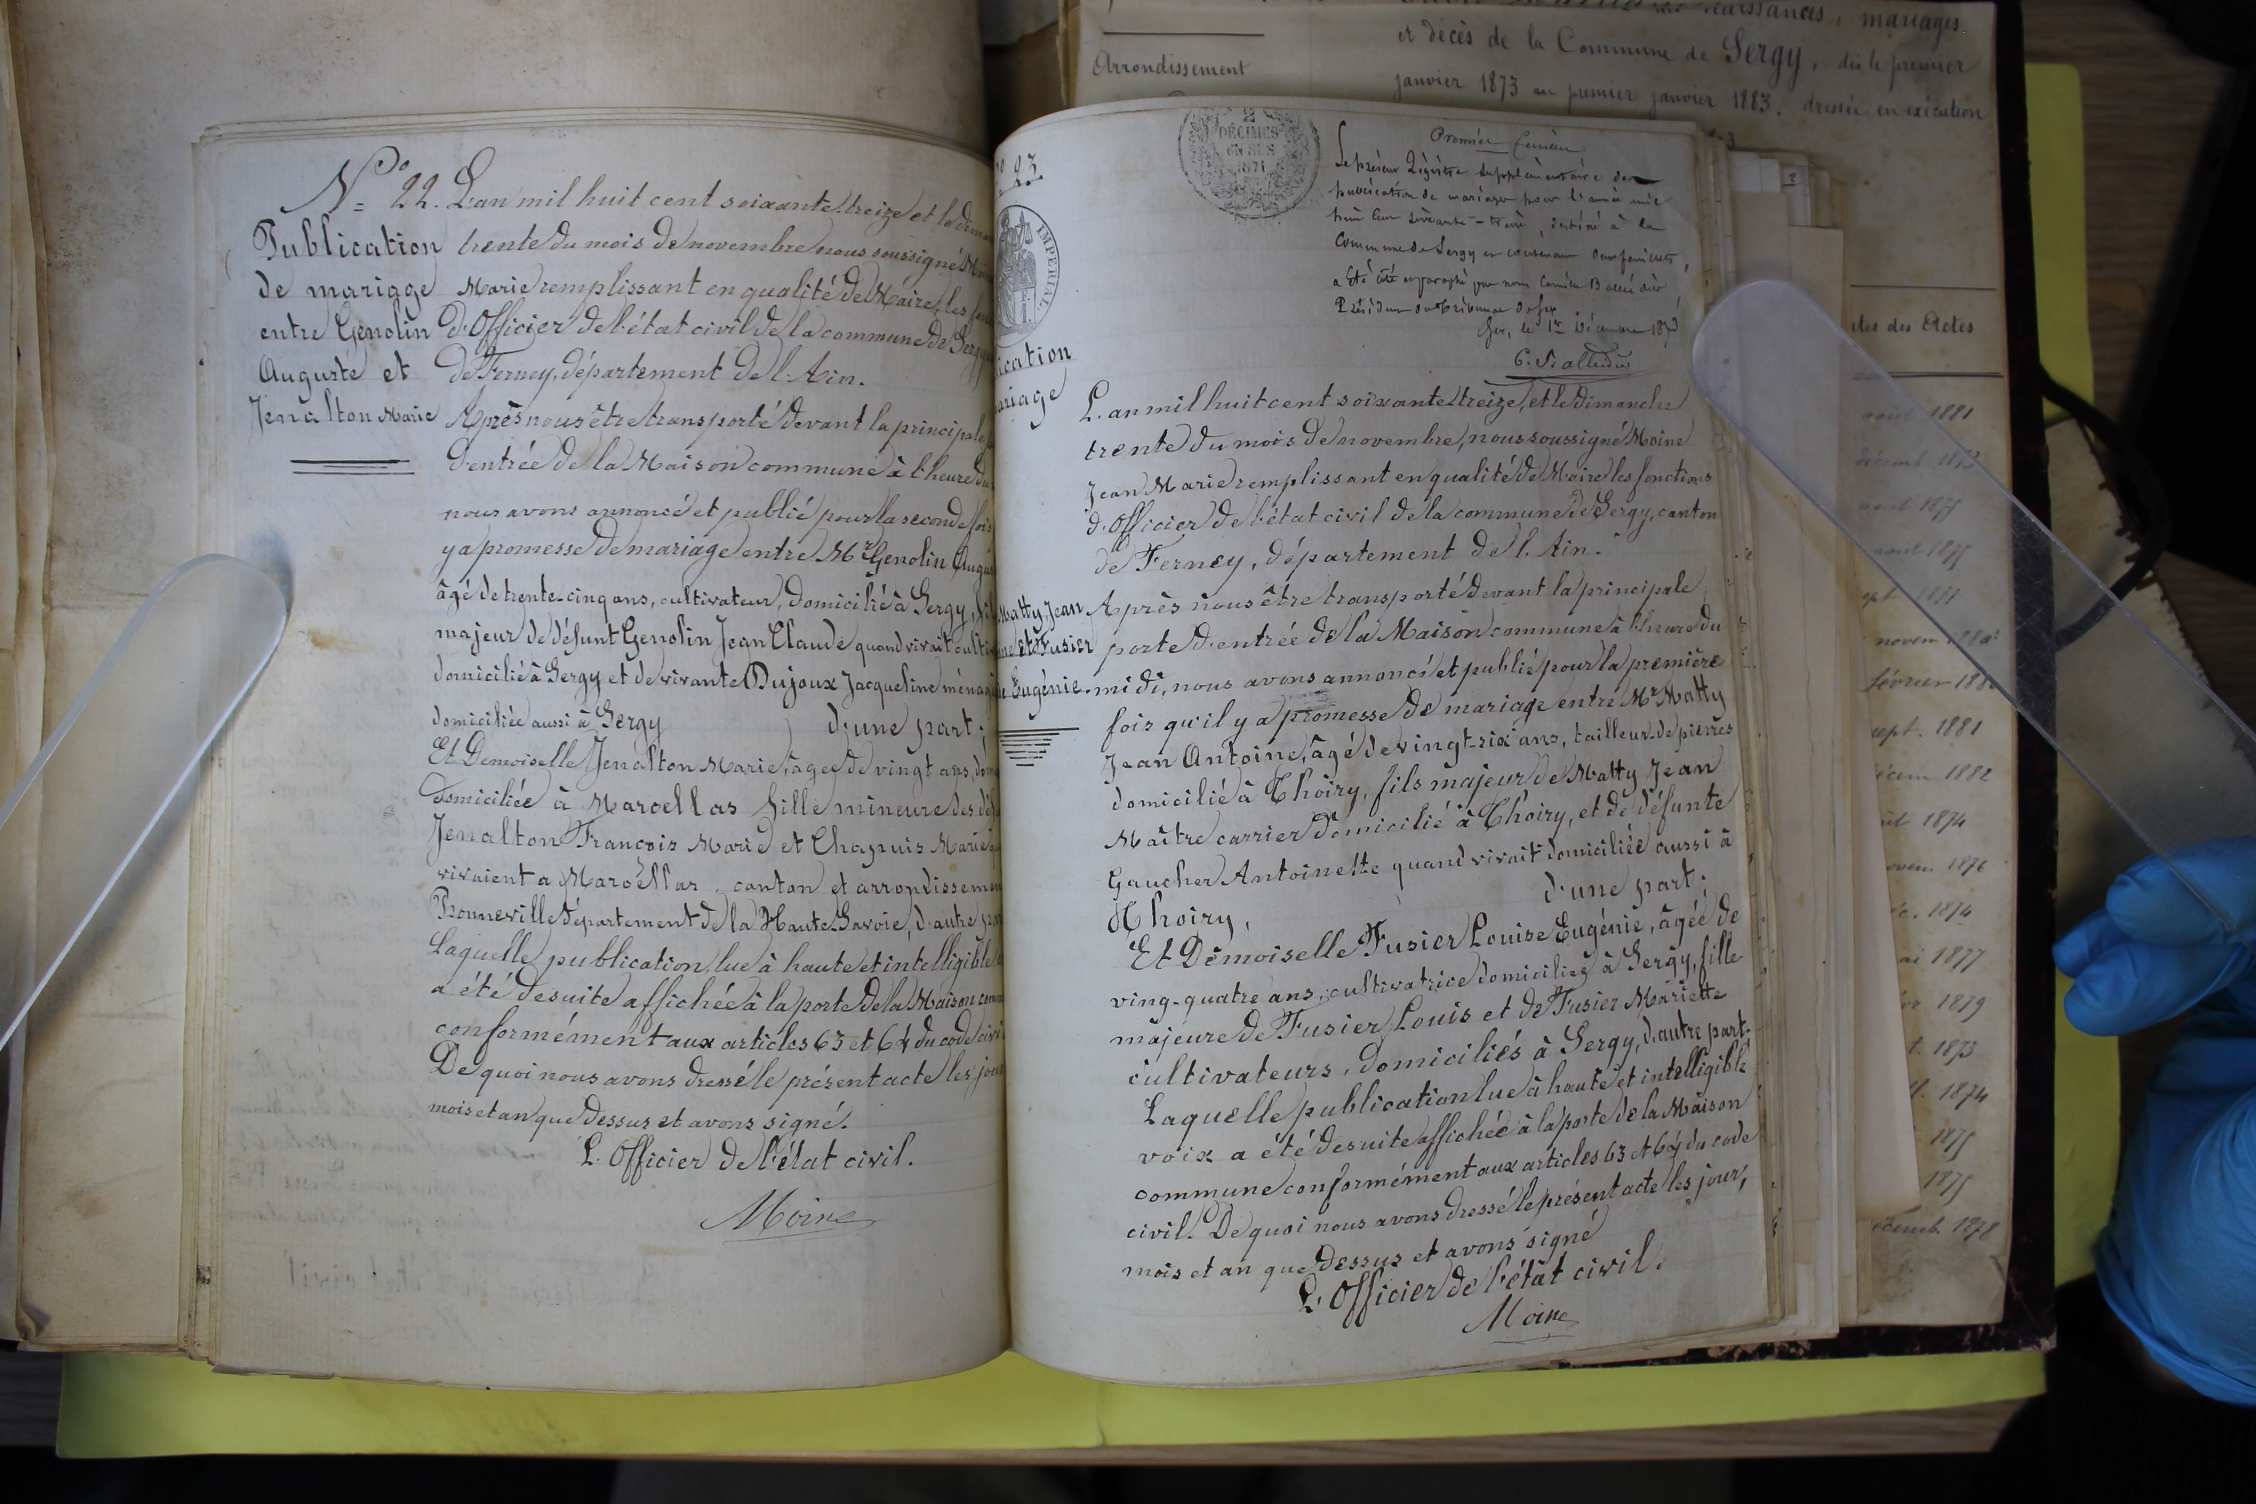 N° 22.
Publication
de mariage
entre Genolin
Auguste et
Jenalton Marie
L'an mil huit cent soixante-treize et le
trente du mois de novembre nous soussigné
Marie remplissant en qualité de Maire, les
d'Officier de l'état civil de la commune de Sergy
de Ferney, département de l'Ain.
Après nous être transporté devant la principale
d'entrée de la Maison commune à l'heure du
nous avons annoncé et publié pour la seconde fois
y a promesse de mariage entre Mr Genolin
âgé de trente-cinq ans, cultivateur, domicilié à Sergy,
majeur de défunt Genolin Jean Claude quand vivait
domicilié à Sergy et de vivante Dujoux Jacqueline
domiciliée aussi à Sergy d'une part;
Et Demoiselle Jenalton Marie, âgée de vingt ans,
domiciliée à Marcellas fille mineure des
Jenalton François Marie et Chapuis Marie
vivaient a Marcellas, canton et
Bonneville département de la Haute Savoie, d'autre
Laquelle publication, lue à haute et intelligible
a été de suite affichée à la porte de la Maison
conformément aux articles 63 et 64 du code
De quoi nous avons dressé le présent acte les
mois et an que dessus et avons signé.
L'Officier de l'état civil.
Moine
2
DÉCIMES
EN SUS
1871
IMPERIAL
23
ication
ariage
Matty Jean
et Fusier
Eugénie.
Le présent Régistre supplémentaire de
publication de mariages pour l'année mil
huit cent soixante-treize, destiné à la
Commune de Sergy et contenant
a été coté et paraphé par nous
Président du Tribunal de Gex
Gex, le 1er Décembre 1873
L'an mil huit cent soixante-treize, et le dimanche
trente du mois de novembre, nous soussigné Moine
Jean Marie remplissant en qualité de Maire les fonctions
d'Officier de l'état civil de la commune de Sergy, canton
de Ferney, département de l'Ain.
Après nous être transporté devant la principale
porte d'entrée de la Maison commune à l'heure du
midi, nous avons annoncé et publié pour la première
fois qu'il y a promesse de mariage entre Mr Matty
Jean Antoine, âgé de vingt-six ans, tailleur de pierres
domicilié à Thoiry, fils majeur de Matty Jean
Maître carrier domicilié à Thoiry, et de défunte
Gaucher Antoinette quand vivait domiciliée aussi à
Thoiry, d'une part;
Et Demoiselle Fusier Louise Eugénie, âgée de
ving-quatre ans, cultivatrice domiciliée à Sergy, fille
majeure de Fusier Louis et de Fusier Mariette
cultivateurs, domiciliés à Sergy, d'autre part.
Laquelle publication lue à haute et intelligible
voix a été de suite affichée à la porte de la Maison
commune conformément aux articles 63 et 64 du code
civil. De quoi nous avons dressé le présent acte les jour,
mois et an que dessus et avons signé
L'Officier de l'état civil.
Moine
naissances, mariages
et décès de la Commune de Sergy, du le premier
Arrondissement
janvier 1873 au premier janvier 1883, dressée en exécution
des Actes
août 1881
1873
1875
1875
novem
février
sept. 1881
1882
1874
1876
1874
1877
1879
1873
1874
1875
1875
1878